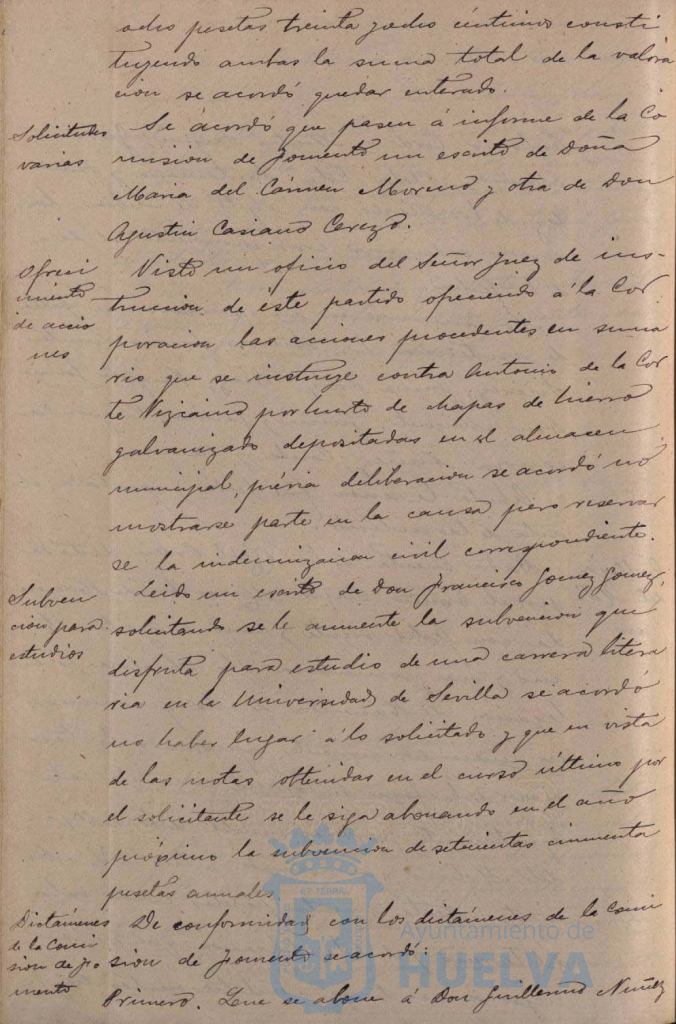 ocho pesetas treinta y ocho céntimos consti
tuyendo ambas la suma total de la valora
cion se acordó quedar enterado.
Solicitudes
varias
Se acordó que pasen á informe de la Co
mision de Fomento un escrito de Doña
Maria del Cármen Moreno y otra de Don
Agustin Casiano Cerezo.
Ofreci
miento
de accio
nes
Visto un oficio del Señor Juez de ins-
truccion de este partido ofreciendo á la Cor
poracion las acciones procedentes en suma
rio que se instruye contra Antonio de la Cor
te Vizcaino por hurto de chapas de hierro
galvanizado depositadas en el almacen
municipal, prévia deliberacion se acordó no
mostrarse parte en la causa pero reservar
se la indemnizacion civil correspondiente.
Subven
cion para
estudios
Leido un escrito de Don Francisco Gomez Gomez,
solicitando se le aumente la subvencion que
disfruta para estudio de una carrera litera
ria en la Universidad de Sevilla se acordó
no haber lugar á lo solicitado y que en vista
de las notas obtenidas en el curso último por
el solicitante se le siga abonando en el año
próximo la subvencion de setecientas cincuenta
pesetas anuales.
Dictámenes
de la Comi
sion de Fo
mento
De conformidad con los dictámenes de la Comi
sion de Fomento se acordó:
Primero. Que se abone á Don Guillermo Nuñez
Ayuntamiento de
HUELVA